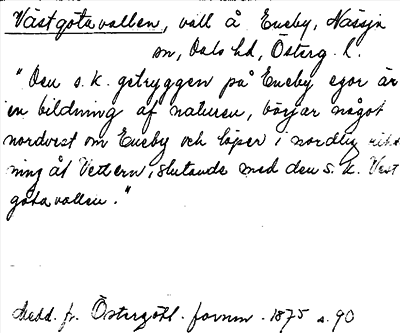 Västgötavallen, vall å Eneby, Nässja
sn, Dals hd, Österg. l.
"Den s.k. getryggen på Eneby egor är
en bildning af naturen, börjar något
nordvest om Eneby och löper i nordlig rikt
ning åt Vettern, slutande med den s.k. Vest
götavallen."
Medd. fr. Östergötl. fornm. 1875 s. 90